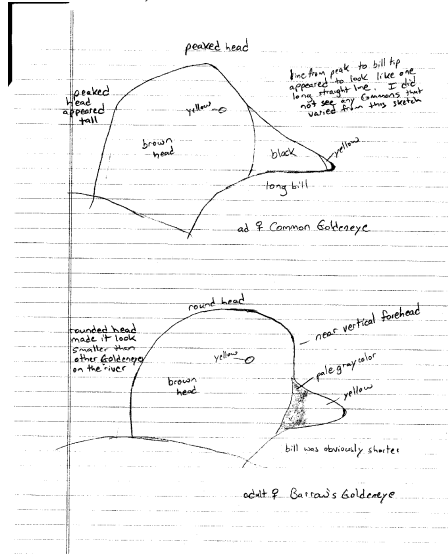 peaked head
peaked
head
appeared
tall
line from peak to bill tip
appeared to look like one
long straight line. I did
not see any Commons that
varied from this sketch
yellow
brown
head
black
yellow
long bill
ad ♀ Common Goldeneye
round head
rounded head
made it look
smaller than
other Goldeneye
on the river
near vertical forehead
yellow
pale gray color
yellow
brown
head
bill was obviously shorter
adult ♀ Barrow's Goldeneye